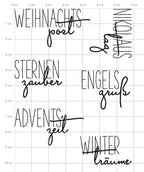 WEIHNACHTS
post
NIKOLAUS
tag
STERNEN
zauber
ENGELS
gruß
ADVENTS
zeit
WINTER
träume